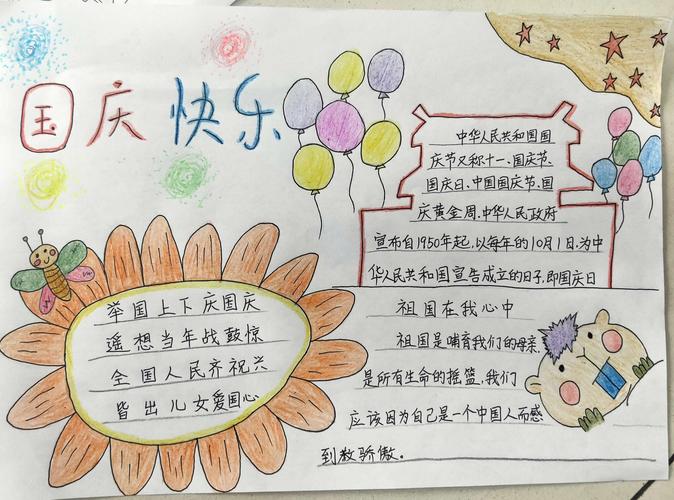 国庆快乐
中华人民共和国国
庆节又称十一、国庆节、
国庆日、中国国庆节、国
庆黄金周.中华人民政府
宣布自1950年起,以每年的10月1日,为中
华人民共和国宣告成立的日子,即国庆日
举国上下庆国庆
遥想当年战鼓惊
全国人民齐祝兴
皆出儿女爱国心
祖国在我心中
祖国是哺育我们的母亲,
是所有生命的摇篮,我们
应该因为自己是一个中国人而感
到教骄傲.